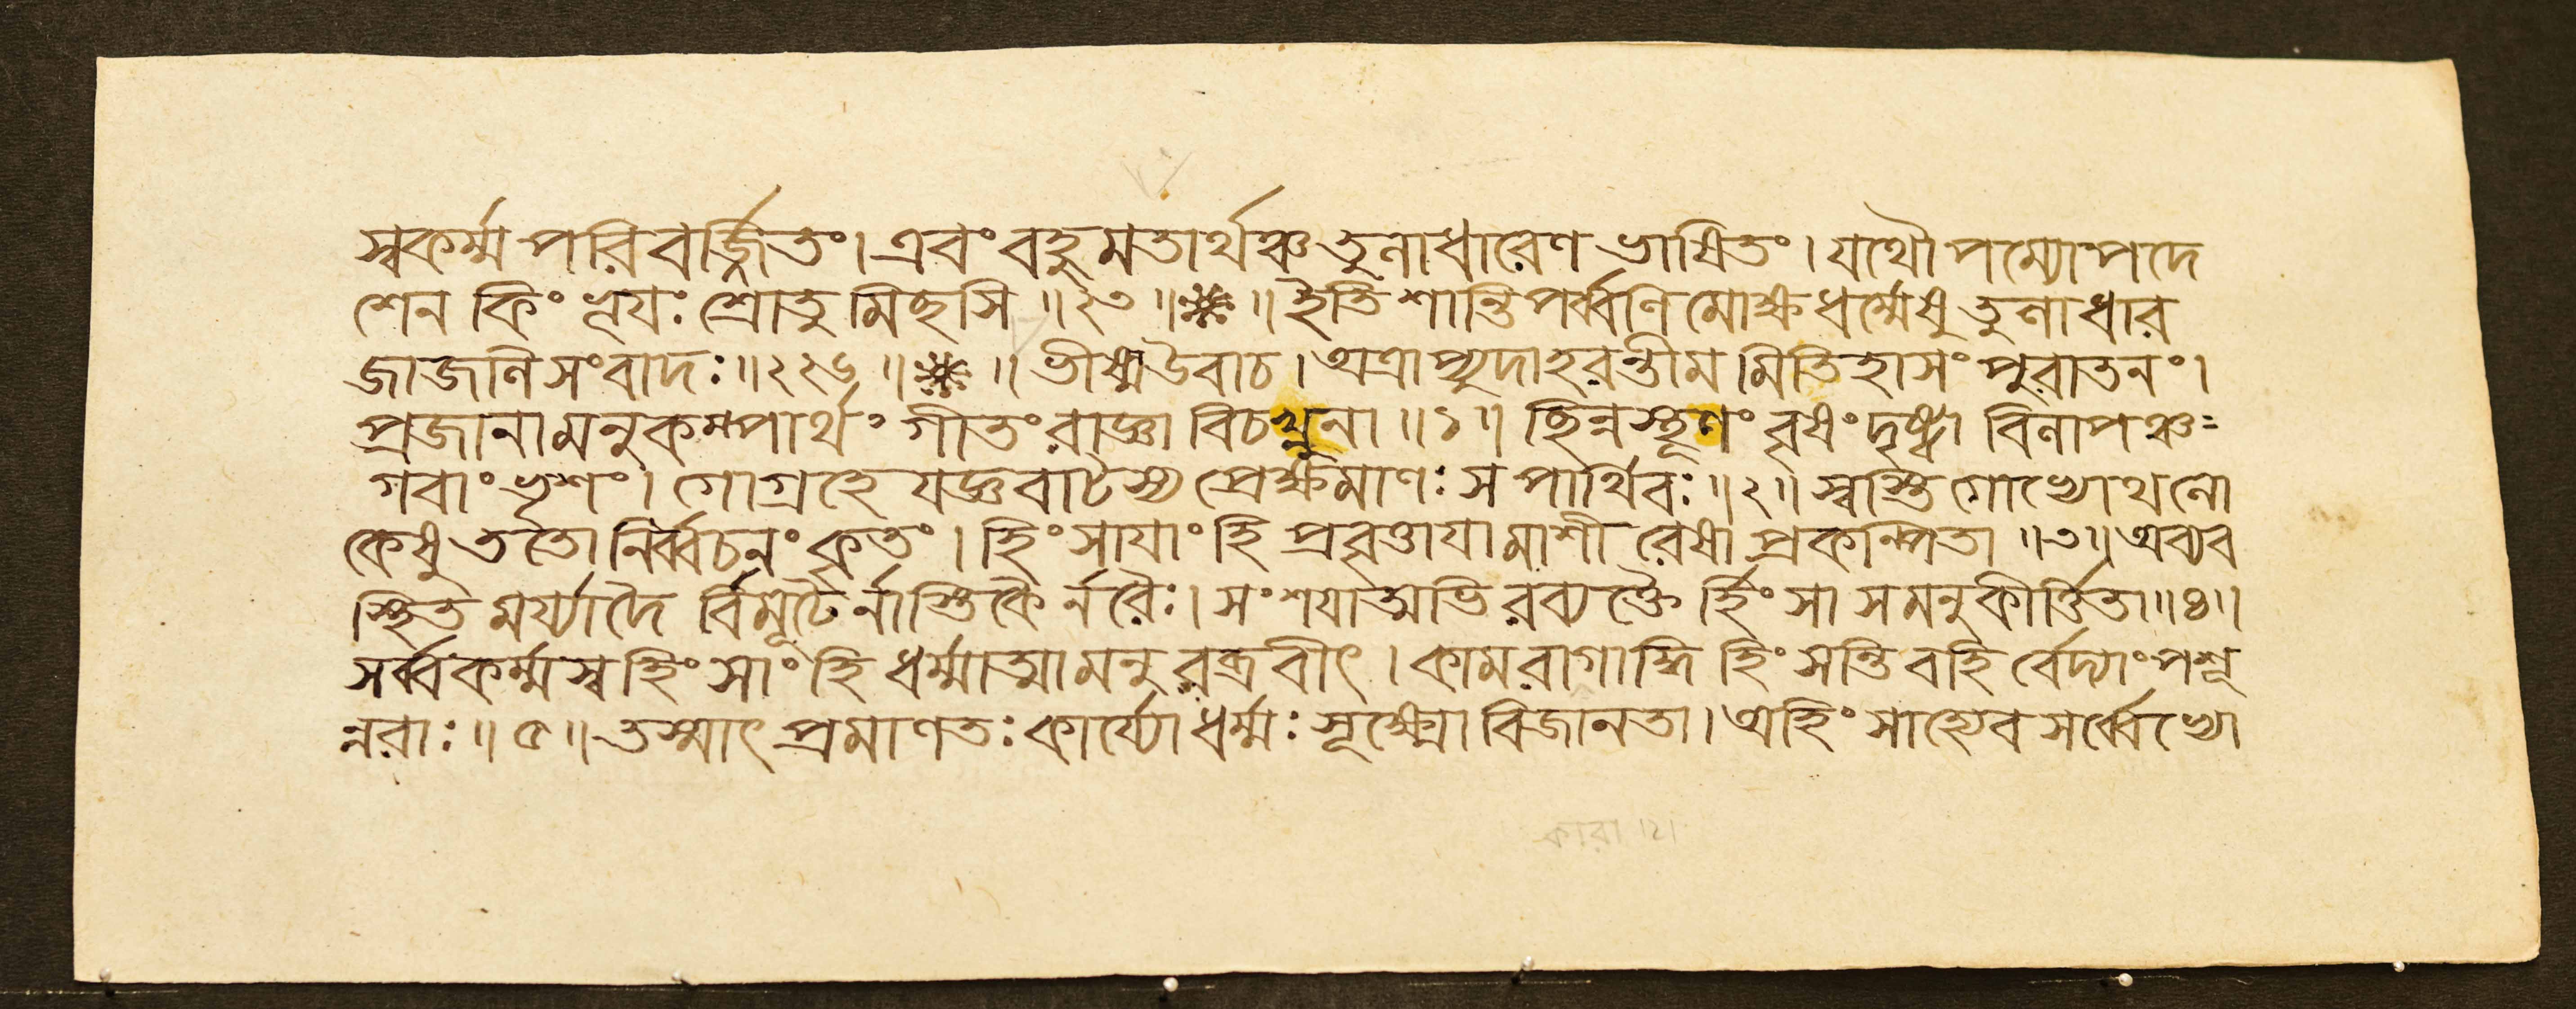 স্বকর্ম্ম পরিবর্জ্জিতং। এবং বহুমতার্থঞ্চ তুলাধারেণ ভাষিতং। যথৌপম্যোপদে
শেন কিং ভূয়ঃ শ্রোতুমিছসি ॥২৩॥ ॥ ইতি শান্তিপর্ব্বণি মোক্ষধর্ম্মেষু তুলাধার
জাজলিসংবাদঃ॥২২৬॥ ॥ ভীষ্মউবাচ। অত্রাপ্যুদাহরন্তীমমিতিহাসং পুরাতনং।
প্রজানামনুকম্পার্থং গীতং রাজ্ঞা বিচখ্নুনা ॥১॥ ছিন্নস্থূণং বৃষং দৃষ্ট্বা বিলাপঞ্চ
গবাং ভৃশং। গোগ্রহে যজ্ঞবাটস্য প্রেক্ষমাণঃ স পার্থিবঃ॥২॥ স্বস্তি গোভ্যোথলো
কেষু ততো নির্ব্বচনং কৃতং। হিংসাযাং হি প্রবৃত্তাযামাশীরেষা প্রকল্পিতা ॥৩॥ অব্যব
স্থিত মর্য্যাদৈ র্বিমূঢৈর্নাস্তিকৈ র্নরৈঃ। সংশযাত্মভিরব্যক্তৈ র্হিংসা সমনুকীর্ত্তিতা॥৪॥
সর্ব্বকর্ম্মস্বহিংসাং হি ধর্ম্মাত্মা মনুরব্রবীৎ। কামরাগাদ্বি হিংসন্তি বহি র্বেদ্যাং পশূ
ন্নরাঃ॥৫॥ তস্মাৎ প্রমাণতঃ কার্য্যো ধর্ম্মঃ সূক্ষ্মো বিজানতা। অহিংসাহ্যেব সর্ব্বেভ্যো
কারা ।২।